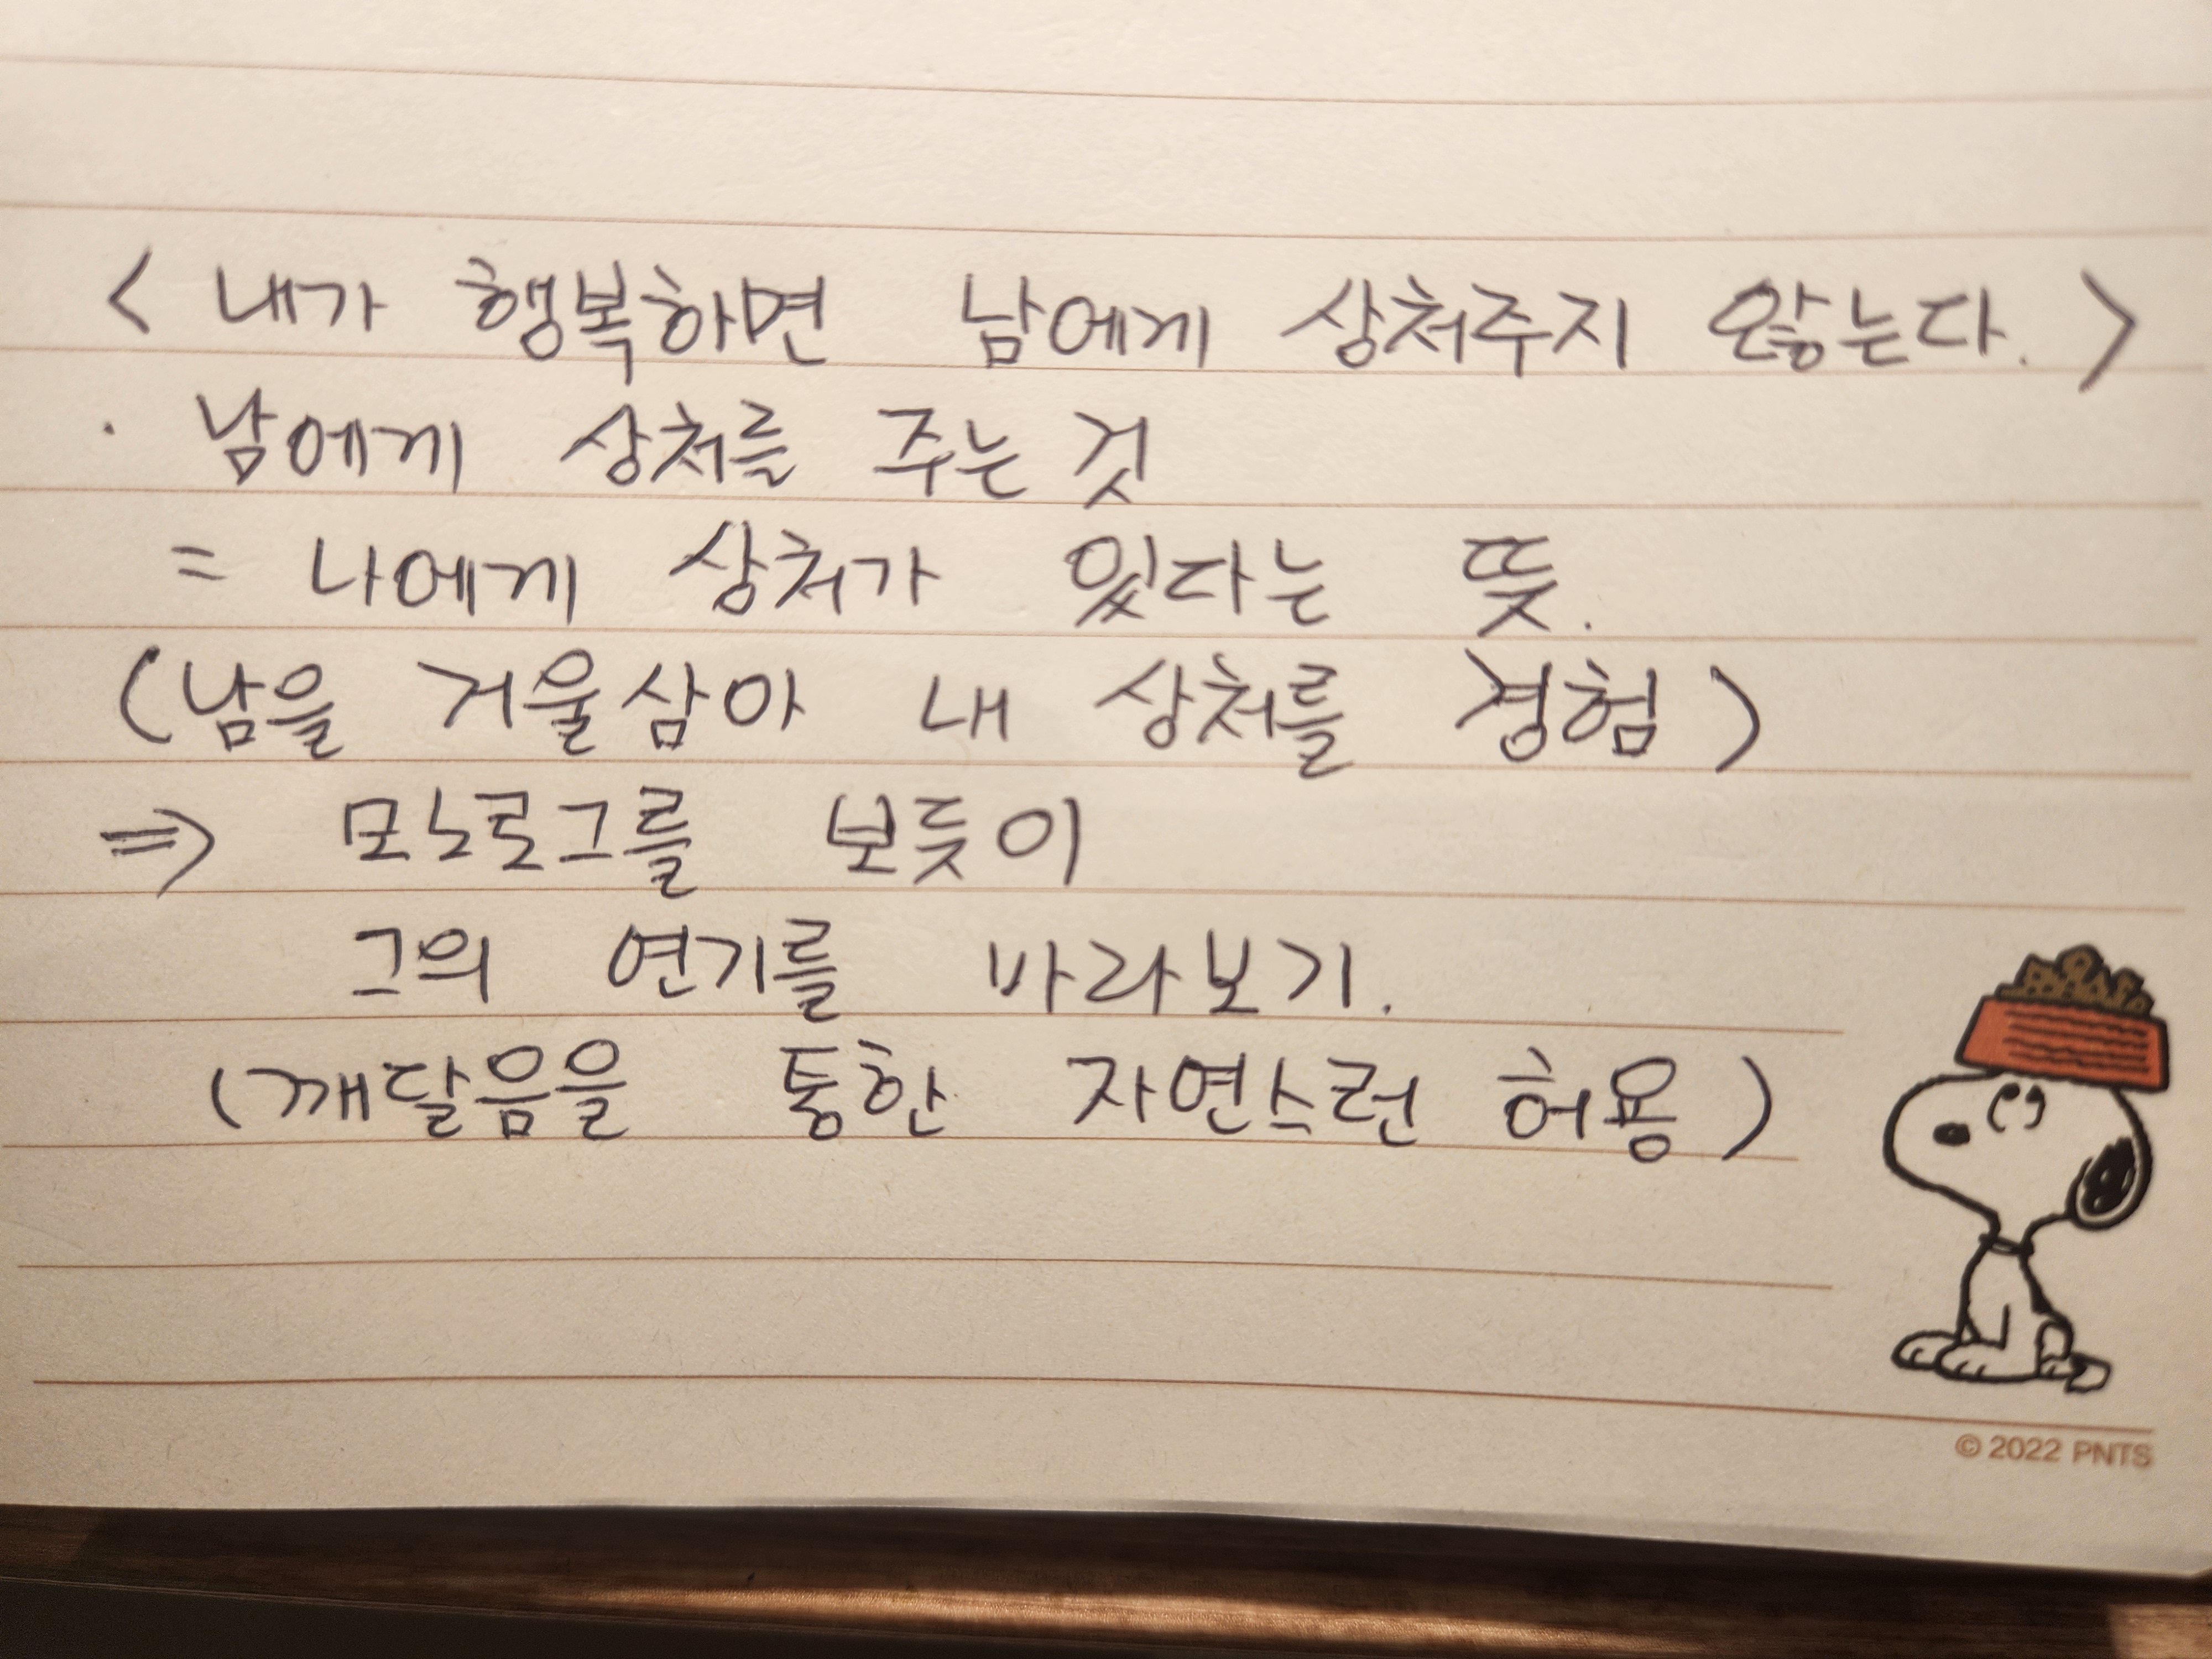 < 내가 행복하면 남에게 상처주지 않는다. >
· 남에게 상처를 주는 것
= 나에게 상처가 있다는 뜻.
(남을 거울삼아 내 상처를 경험)
⇒ 모노로그를 보듯이
그의 연기를 바라보기.
(깨달음을 통한 자연스런 허용)
© 2022 PNTS